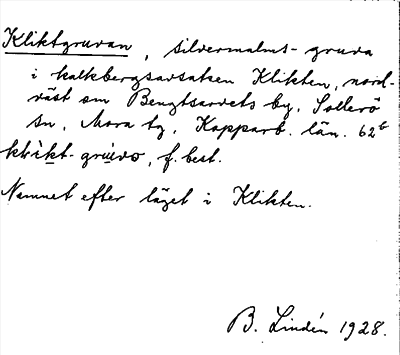 Kliktgruvan, silvermalms-gruva
i kalkbergsavsatsen Klikten, nord-
väst om Bengtsarvets by, Sollerö
sn, Mora tg, Kopparb. län. 62b
klìkt-grùvo, f. best.
Namnet efter läget i Klikten.
B. Lindén 1928.